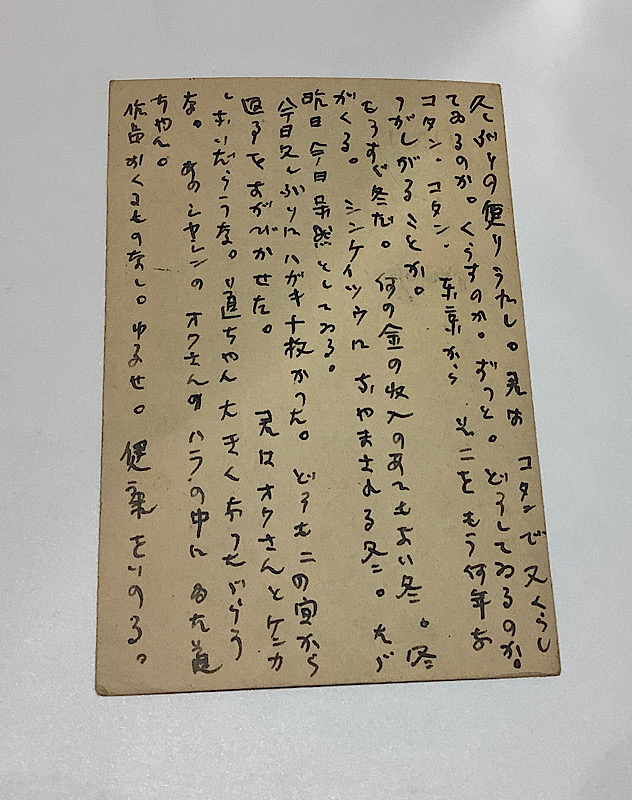 久しぶりの便りうれし。君は コタンで又くらし
てゐるのか。くらすのか。ずっと。どうしてゐるのか。
コタン、コタン、東京から そこをもう何年な
つがしがることか。
もうすぐ冬だ。何の金の収入のあてもない冬。冬
がくる。 シンケイツウに なやまされる冬。たゞ
昨日今日呆然としてゐる。
今日久しぶりにハガキ十枚かつた。どうもこの宣から
君はオクさんとケンカ
しないだらうな。道ちやん大きくなつただらう
な。あのシャレンのオクさんのハラの中にゐた道
ちやん。
作品かくものなし。ゆるせ。 健康をいのる。